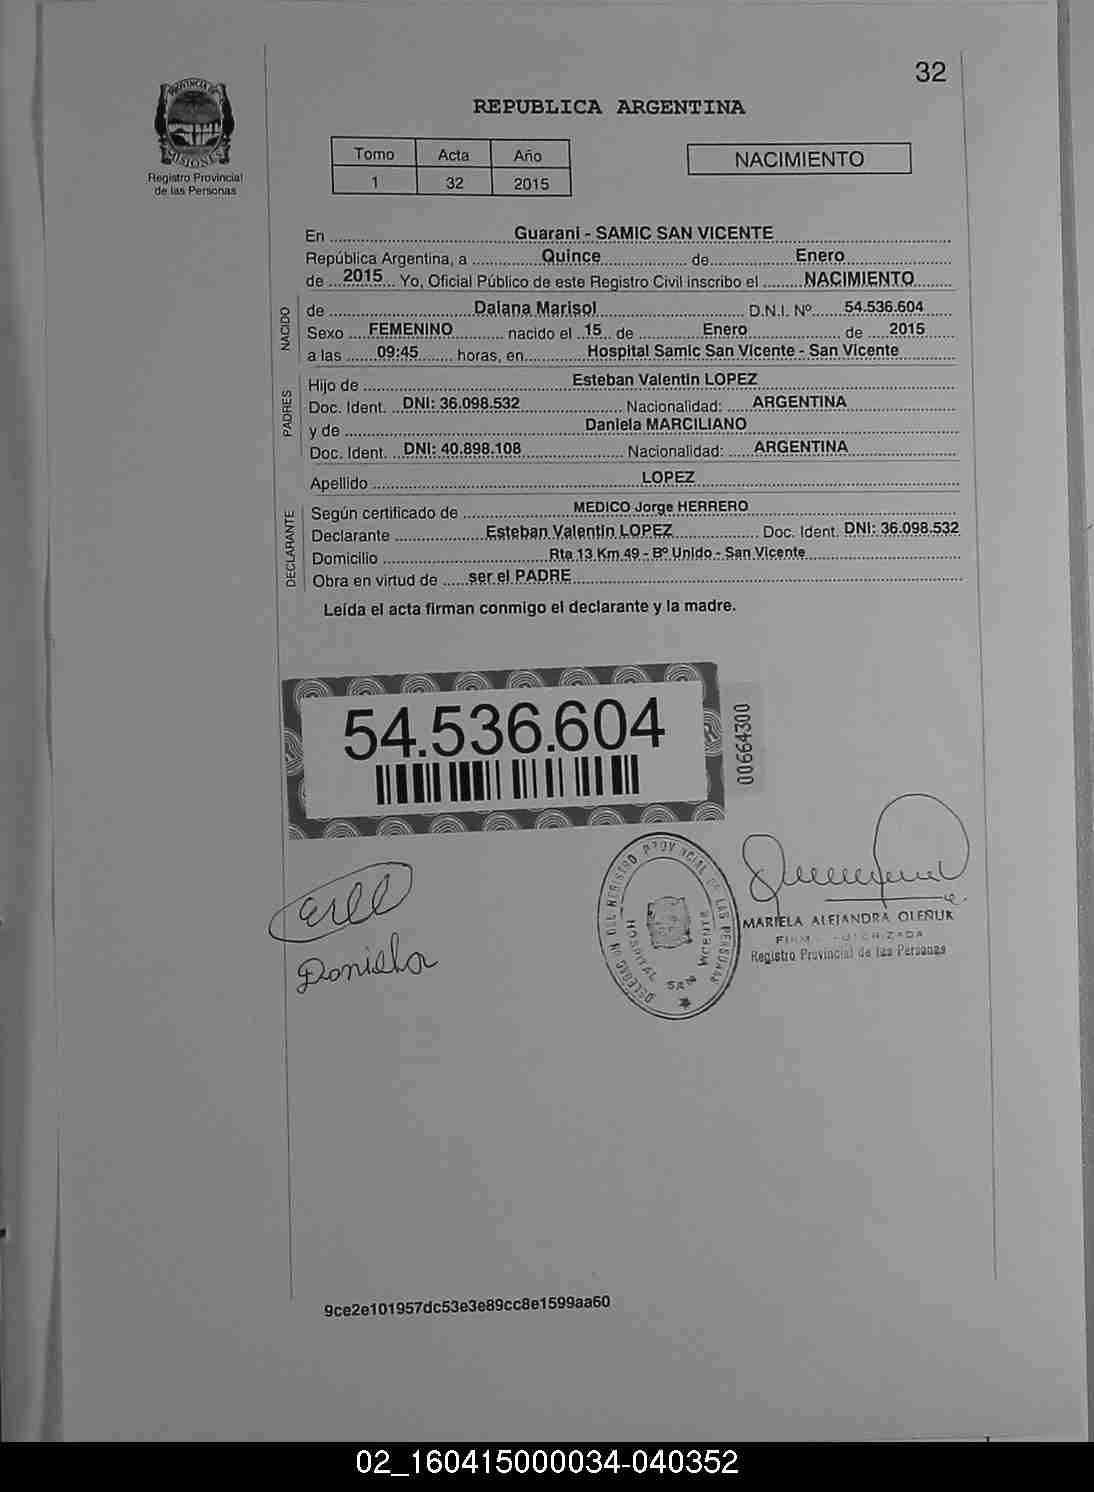 32
PROVINCIA DE
MISIONES
Registro Provincial
de las Personas
REPUBLICA ARGENTINA
Tomo Acta Año
1 32 2015
NACIMIENTO
En Guaraní - SAMIC SAN VICENTE
República Argentina, a Quince de Enero
de 2015 Yo, Oficial Público de este Registro Civil inscribo el NACIMIENTO
NACIDO
de Daiana Marisol D.N.I. Nº 54.536.604
Sexo FEMENINO nacido el 15 de Enero de 2015
a las 09:45 horas, en Hospital Samic San Vicente - San Vicente
PADRES
Hijo de Esteban Valentin LOPEZ
Doc. Ident. DNI: 36.098.532 Nacionalidad: ARGENTINA
y de Daniela MARCILIANO
Doc. Ident. DNI: 40.898.108 Nacionalidad: ARGENTINA
Apellido LOPEZ
DECLARANTE
Según certificado de MEDICO Jorge HERRERO
Declarante Esteban Valentin LOPEZ Doc. Ident. DNI: 36.098.532
Domicilio Rta 13 Km 49 - Bº Unido - San Vicente
Obra en virtud de ser el PADRE
Leída el acta firman conmigo el declarante y la madre.
54.536.604
00664300
Daniela
DELEGACION DEL REGISTRO PROVINCIAL DE LAS PERSONAS
HOSPITAL SAN VICENTE
MARIELA ALEJANDRA OLEÑUK
FIRMA AUTORIZADA
Registro Provincial de las Personas
9ce2e101957dc53e3e89cc8e1599aa60
02_160415000034-040352